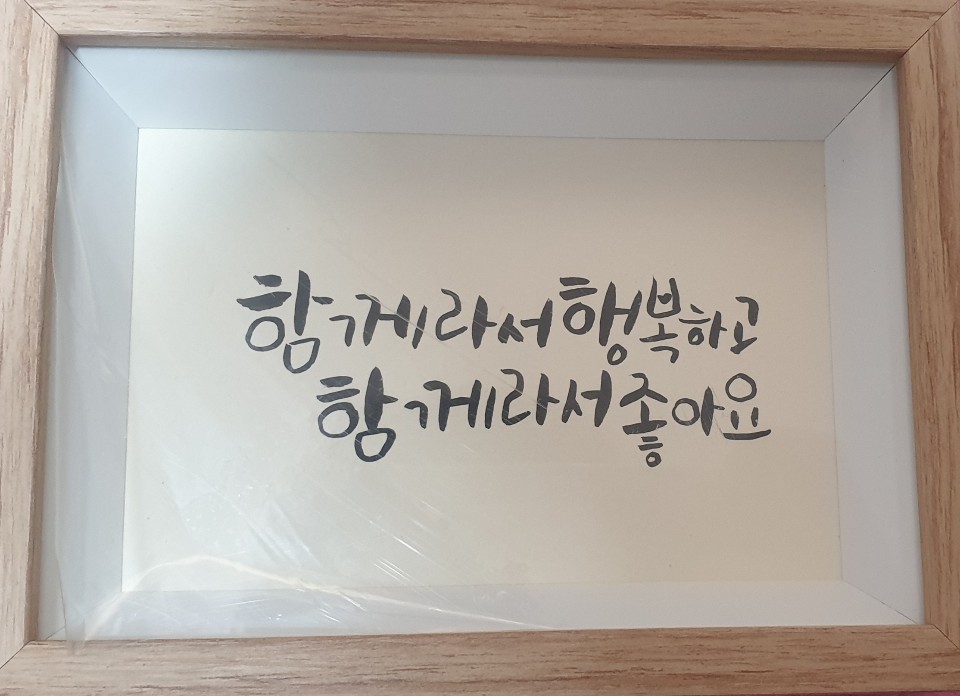 함께라서행복하고
함께라서좋아요